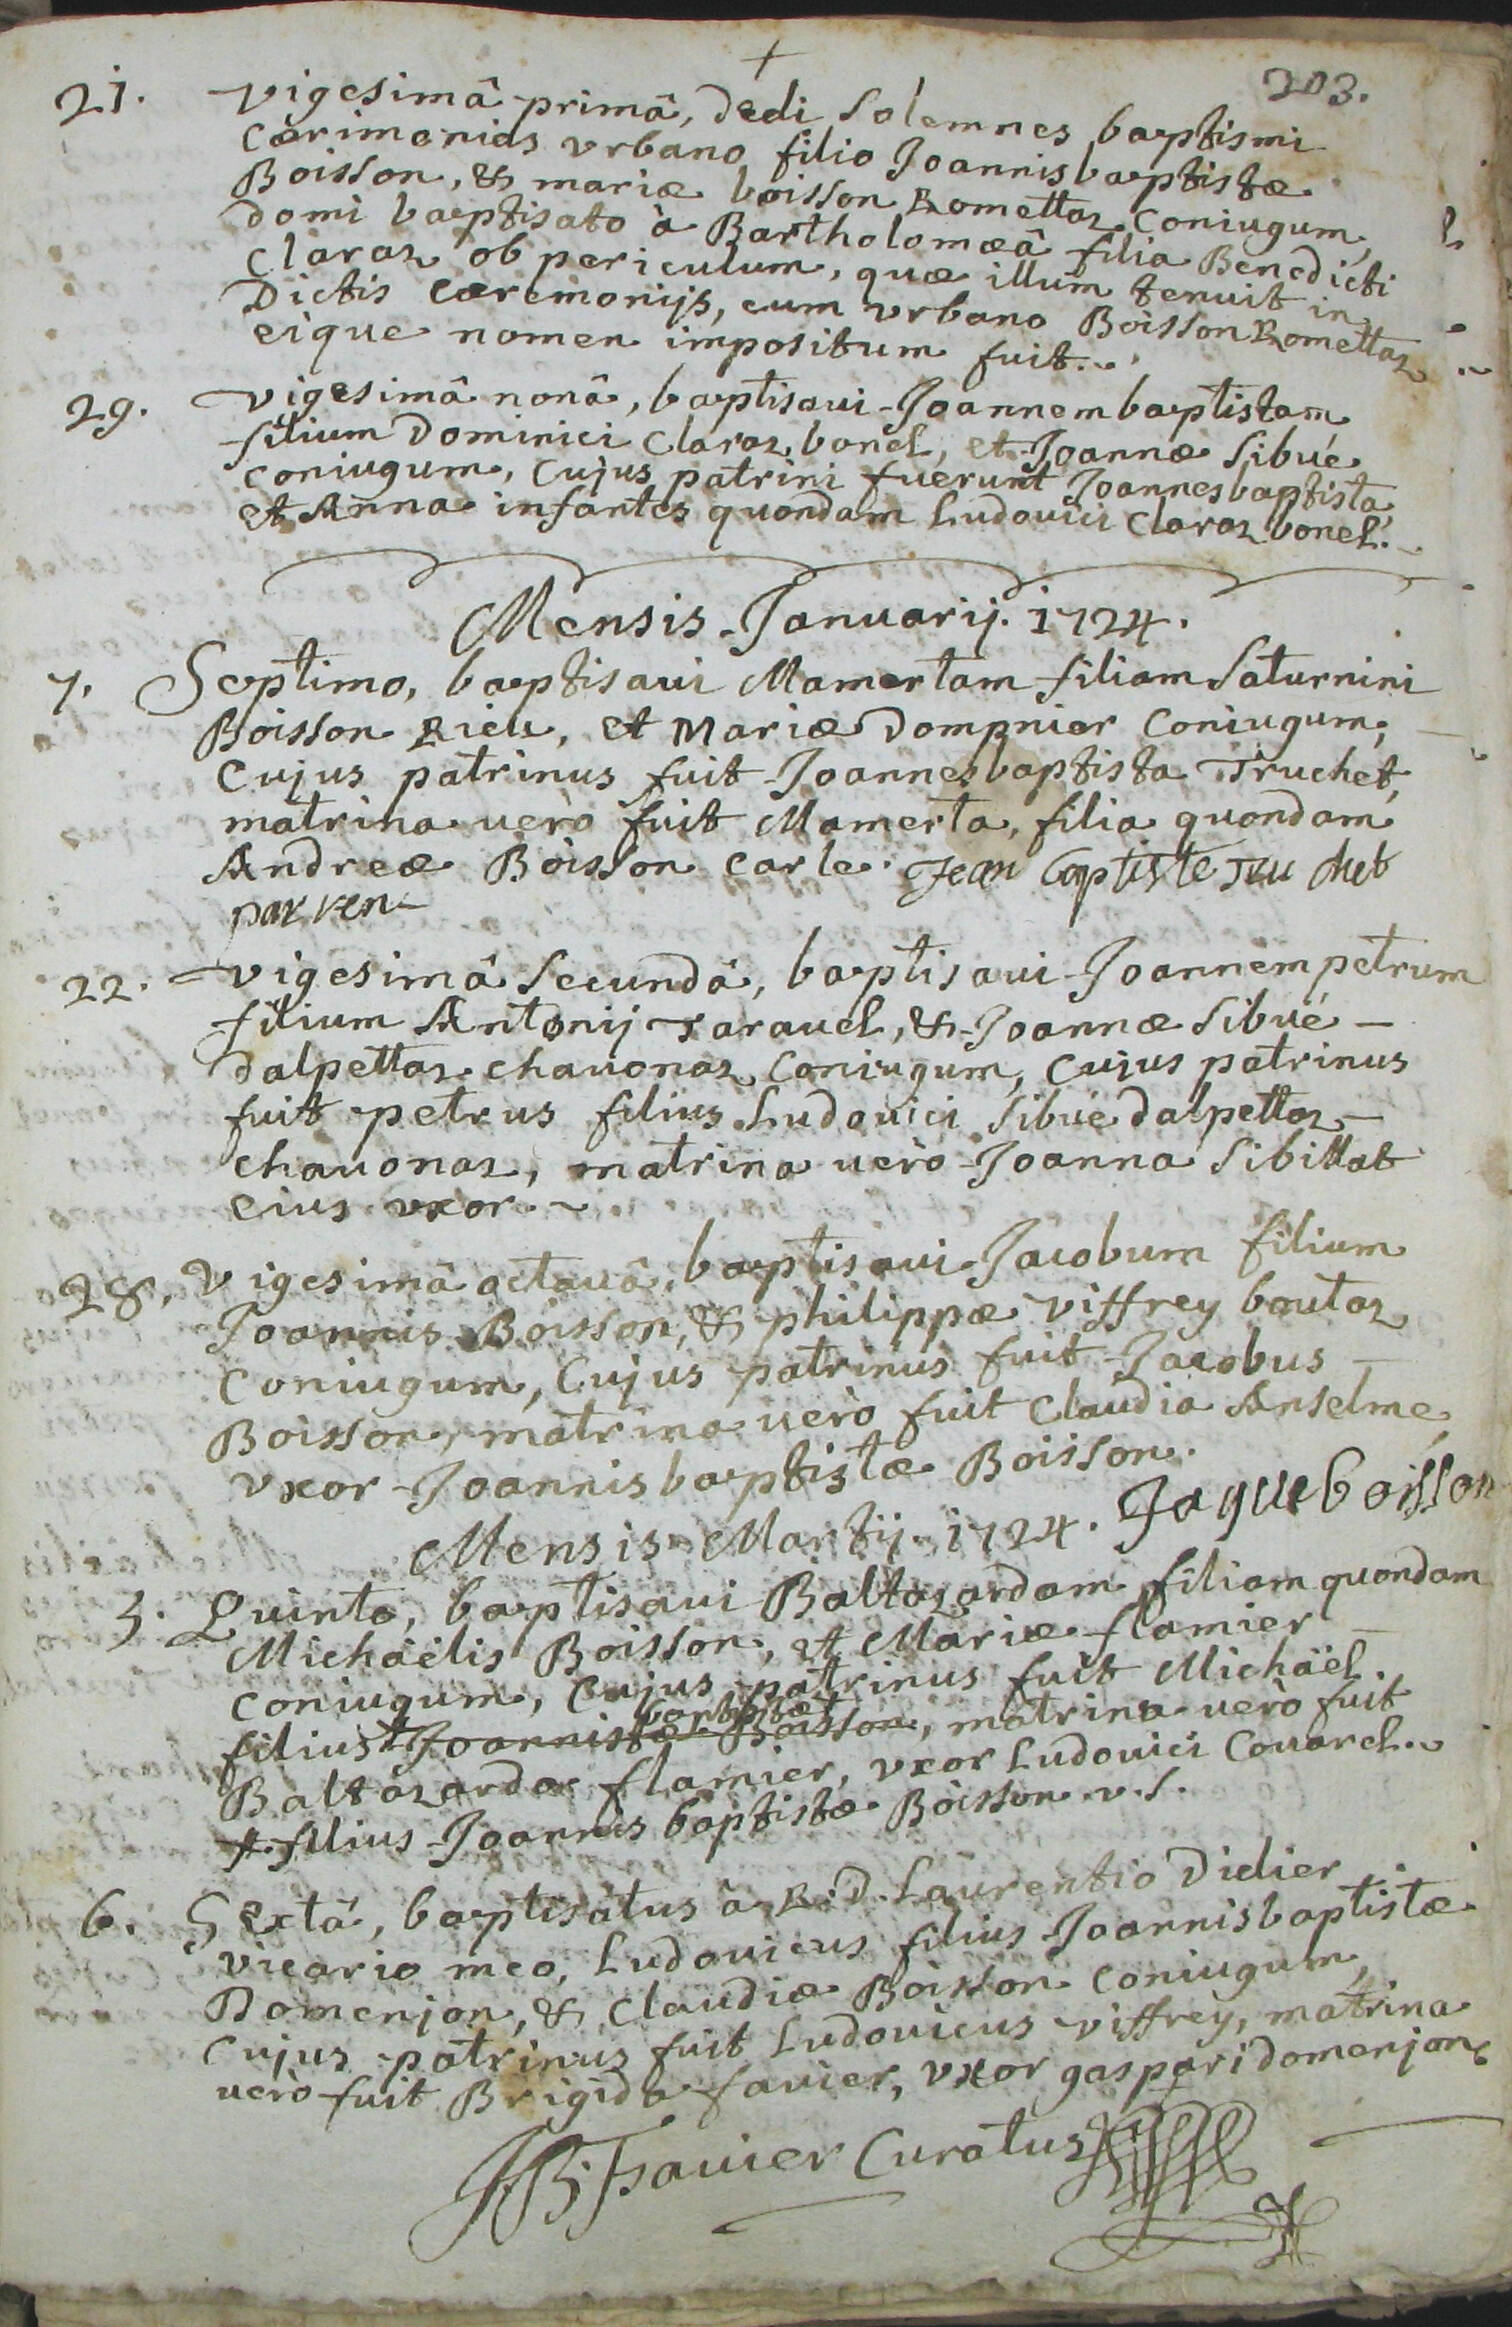 203.
21. Vigesimâ primâ, dedi Solemnes baptismi
Cærimonias vrbano filio Joannisbaptistæ
Boisson, & mariæ boisson Romettaz Coniugum,
domi baptisato à Bartholomæâ filia Benedicti
Claraz ob periculum, quæ illum tenuit in
Dictis Cæremonijs, cum vrbano Boisson Romettaz
eique nomen impositum fuit.
29. Vigesimâ nonâ, baptisaui Joannembaptistam
filium Dominici Claraz bonel, et Joannæ Sibué
coniugum, Cujus patrini fuerunt Joannesbaptista
et Anna infantes quondam Ludouici Claraz bonel.
Mensis Januarij. 1724.
7. Septimo, baptisaui Mamertam filiam Saturnini
Boisson Rieu, et Mariæ Dompnier Coniugum,
Cujus patrinus fuit Joannesbaptista Truchet,
matrina uerò fuit Mamerta, filia quondam
Andreæ Boisson Carle. Jean baptiste Tru chet
parren
22. Vigesimâ Secundâ, baptisaui Joannempetrum
filium Antonij Tarauel, & Joannæ Sibué
dalpettaz chauonaz Coniugum, Cujus patrinus
fuit petrus filius Ludouici Sibué dalpettaz
chauonaz, matrina uerò Joanna Sibillat
eius vxor.
28. Vigesimâ octauâ, baptisaui Jacobum filium
Joannis Boisson, & philippæ viffrey boutaz
Coniugum, Cujus patrinus fuit Jacobus
Boisson, matrina uerò fuit Claudia Anselme
vxor Joannisbaptistæ Boisson.
Jaque boisson
Mensis Martij. 1724.
5. Quinto, baptisaui Baltazardam filiam quondam
Michaëlis Boisson, et Mariæ flamier
coniugum, Cujus patrinus fuit Michaël
baptistæ
filius Joannis Boisson, matrina uerò fuit
Baltazarda flamier, vxor Ludouici Couarel.
filius Joannis baptistæ Boisson v.s.
6. Sextâ, baptisatus à R. D. Laurentio Didier
vicario meo, Ludouicus filius Joannisbaptistæ
Domenjon, & Claudiæ Boisson coniugum,
Cujus patrinus fuit Ludouicus viffrey, matrina
uerò fuit Brigida fauier, vxor gaspari domenjon
JB fauier Curatus